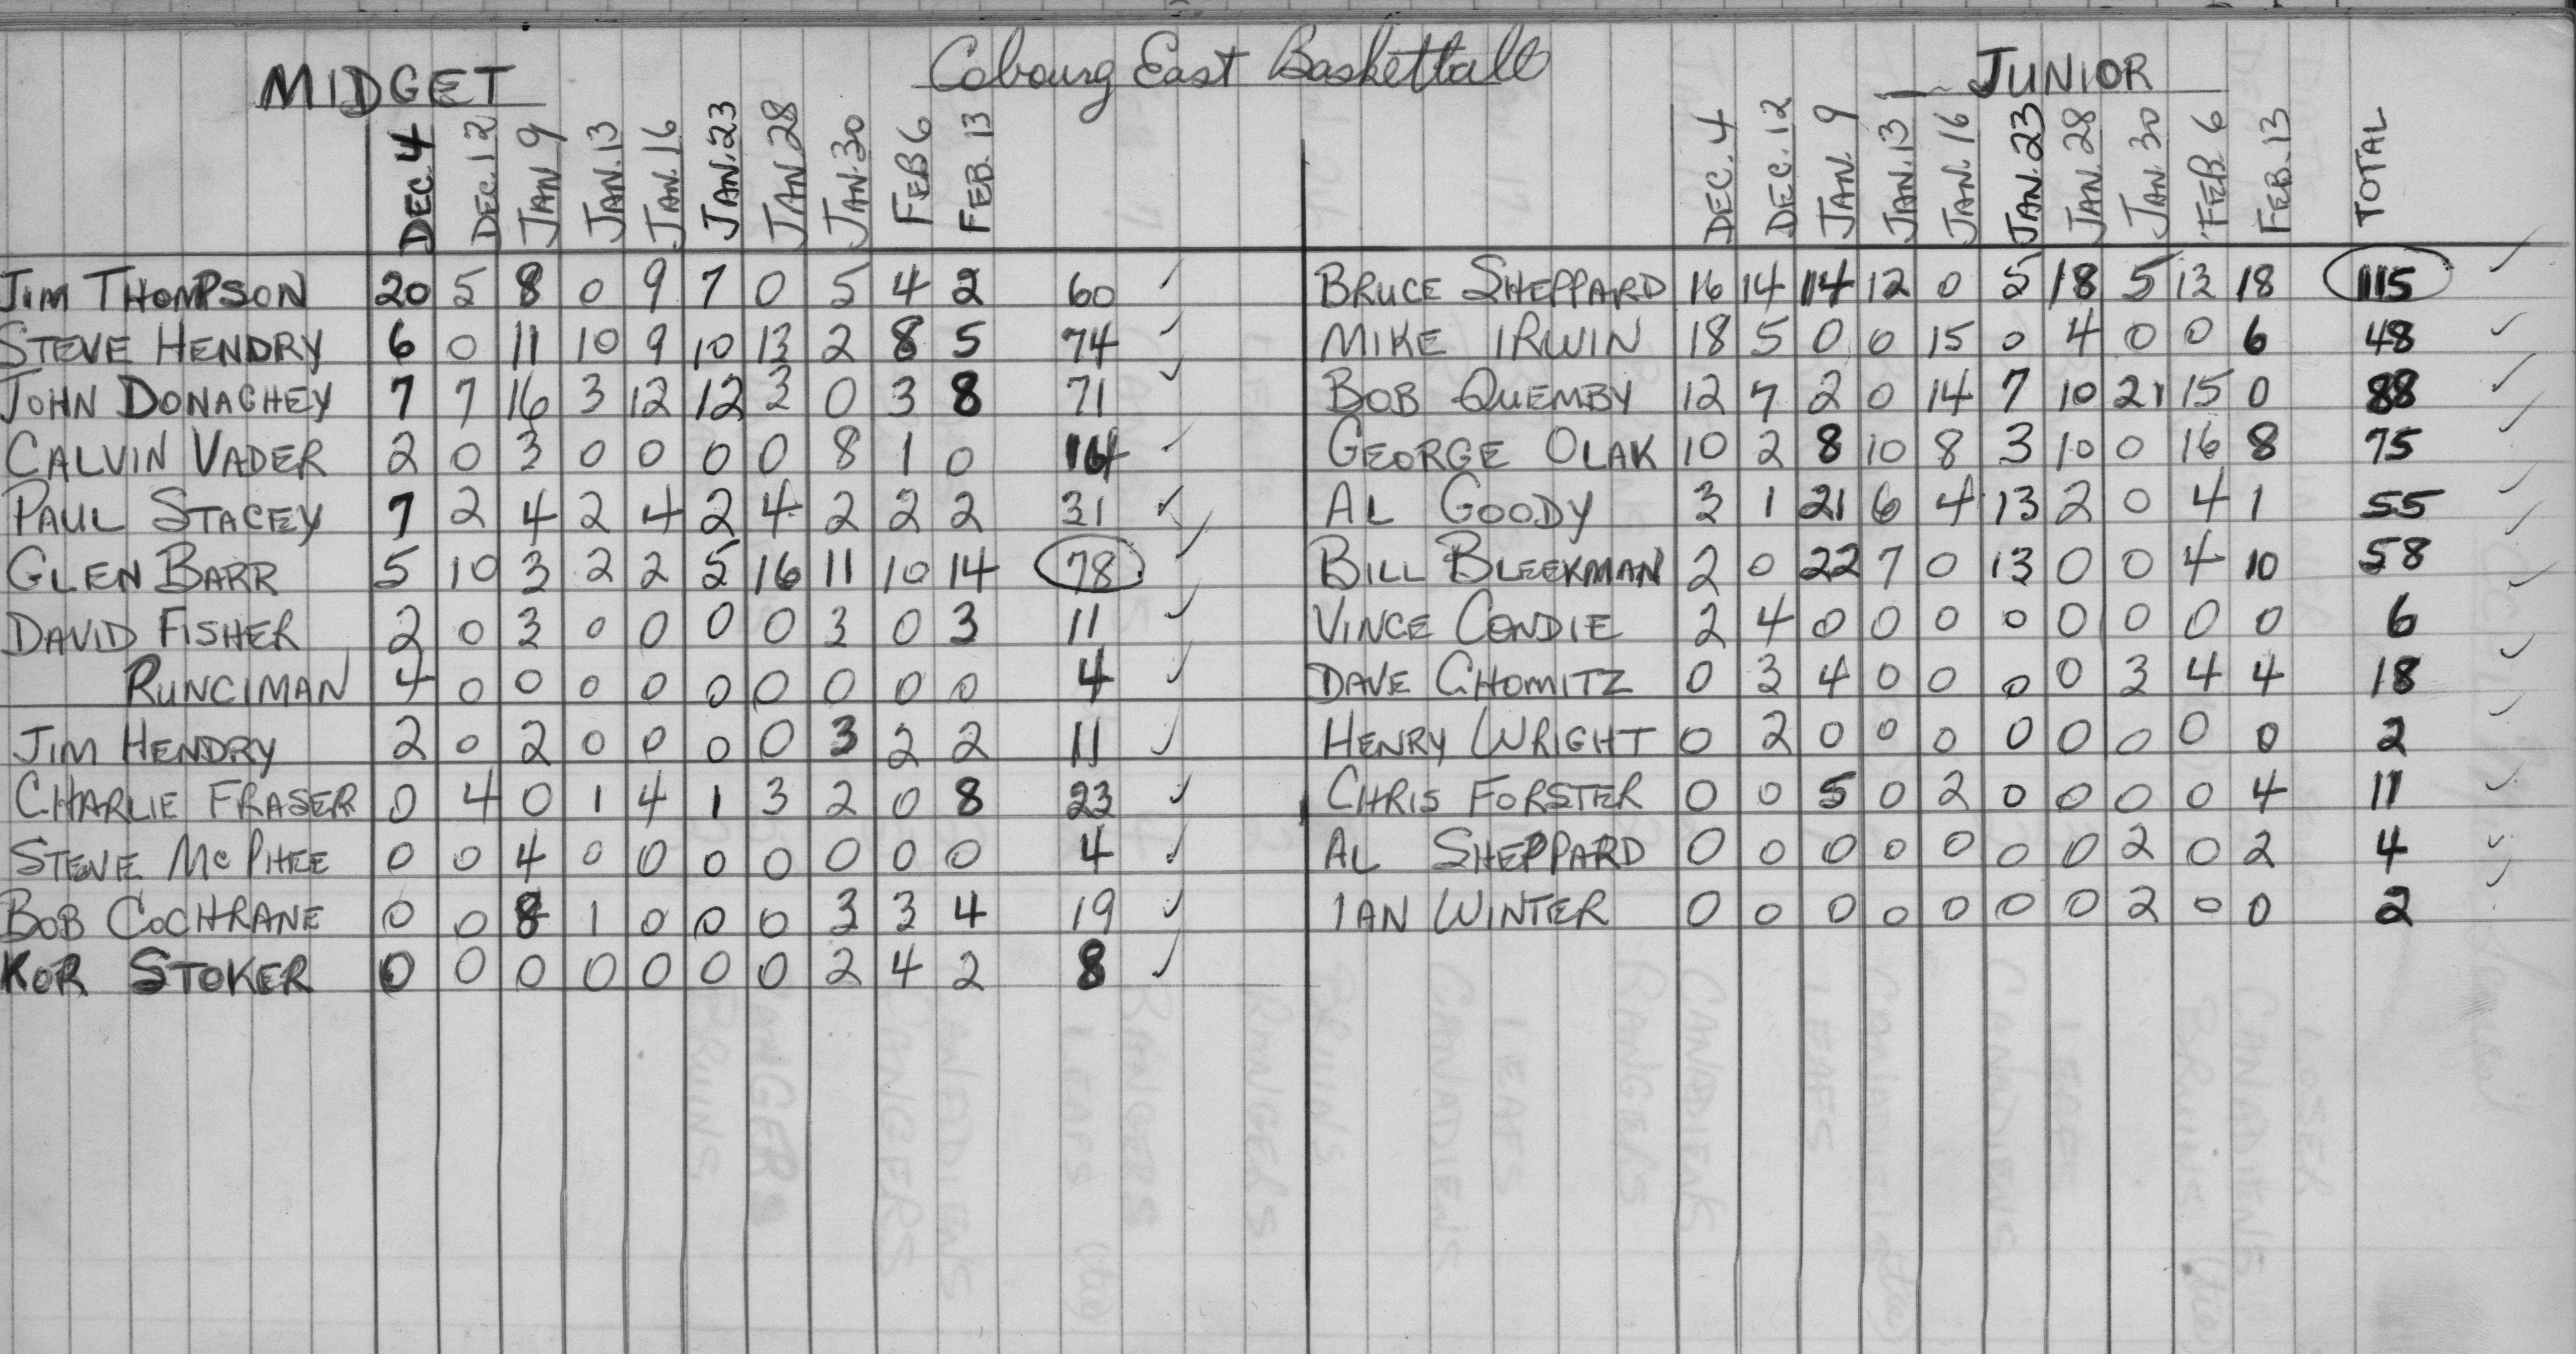 Cobourg East Basketball
MIDGET
DEC. 4 DEC. 12 JAN 9 JAN. 13 JAN. 16 JAN. 23 JAN. 28 JAN. 30 FEB 6 FEB. 13
JIM THOMPSON 20 5 8 0 9 7 0 5 4 2 60 ✓
STEVE HENDRY 6 0 11 10 9 10 13 2 8 5 74 ✓
JOHN DONAGHEY 7 7 16 3 12 12 3 0 3 8 71 ✓
CALVIN VADER 2 0 3 0 0 0 0 8 1 0 14 ✓
PAUL STACEY 7 2 4 2 4 2 4 2 2 2 31 ✓
GLEN BARR 5 10 3 2 2 5 16 11 10 14 78 ✓
DAVID FISHER 2 0 3 0 0 0 0 3 0 3 11 ✓
RUNCIMAN 4 0 0 0 0 0 0 0 0 0 4 ✓
JIM HENDRY 2 0 2 0 0 0 0 3 2 2 11 ✓
CHARLIE FRASER 0 4 0 1 4 1 3 2 0 8 23 ✓
STEVE MCPHEE 0 0 4 0 0 0 0 0 0 0 4 ✓
BOB COCHRANE 0 0 8 1 0 0 0 3 3 4 19 ✓
KOR STOKER 0 0 0 0 0 0 0 2 4 2 8 ✓
JUNIOR
DEC. 4 DEC. 12 JAN. 9 JAN. 13 JAN. 16 JAN. 23 JAN. 28 JAN. 30 FEB. 6 FEB. 13 TOTAL
BRUCE SHEPPARD 16 14 14 12 0 5 18 5 13 18 115 ✓
MIKE IRWIN 18 5 0 0 15 0 4 0 0 6 48 ✓
BOB QUEMBY 12 7 2 0 14 7 10 21 15 0 88 ✓
GEORGE OLAK 10 2 8 10 8 3 10 0 16 8 75 ✓
AL GOODY 3 1 21 6 4 13 2 0 4 1 55 ✓
BILL BLEEKMAN 2 0 22 7 0 13 0 0 4 10 58 ✓
VINCE CONDIE 2 4 0 0 0 0 0 0 0 0 6 ✓
DAVE CHOMITZ 0 3 4 0 0 0 0 3 4 4 18 ✓
HENRY WRIGHT 0 2 0 0 0 0 0 0 0 0 2 ✓
CHRIS FORSTER 0 0 5 0 2 0 0 0 0 4 11 ✓
AL SHEPPARD 0 0 0 0 0 0 0 2 0 2 4 ✓
IAN WINTER 0 0 0 0 0 0 0 2 0 0 2 ✓